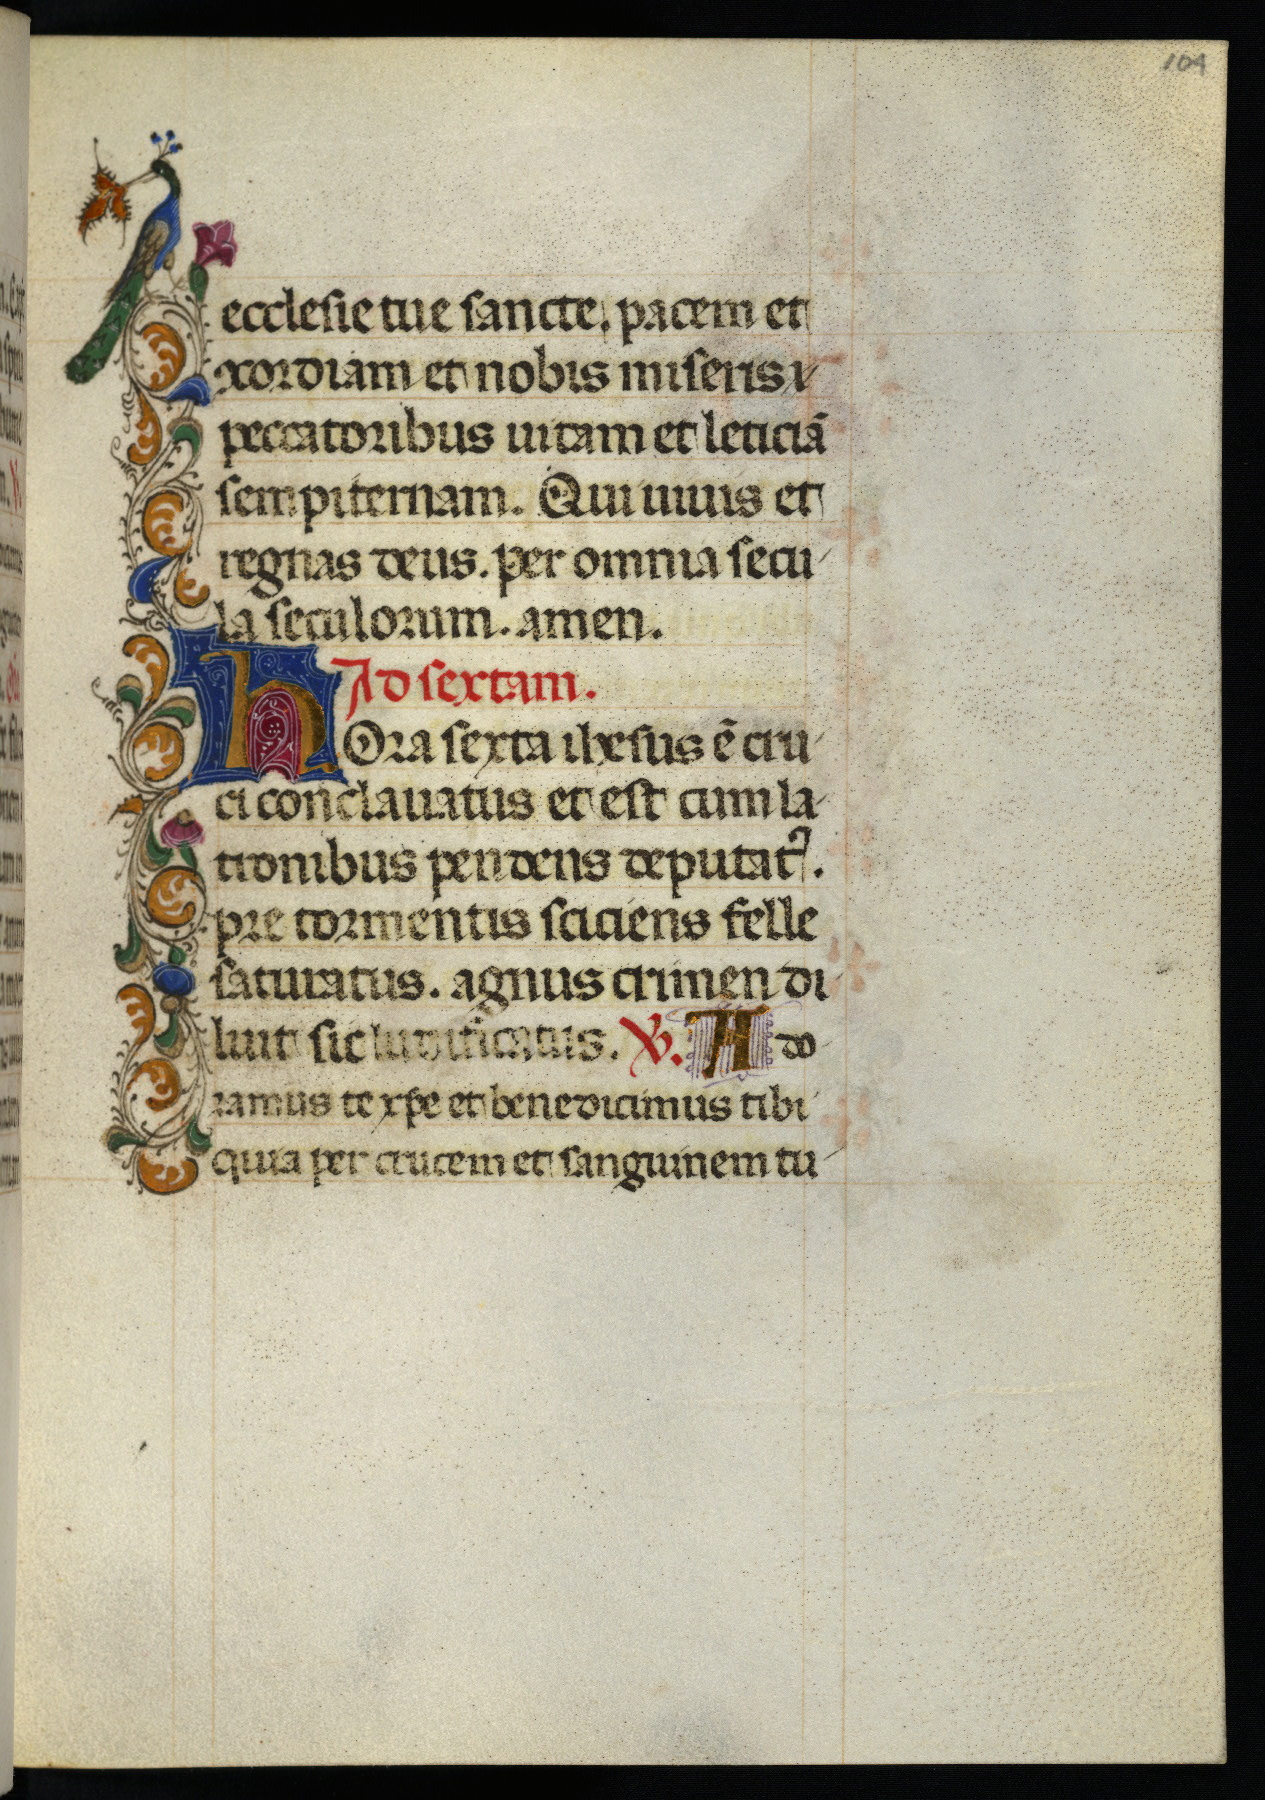 104
ecclesie tue sancte. pacem et
xordiam et nobis miseris ⁊
peccatoribus uitam et leticiā
sempiternam. Qui uiuis et
regnas deus. per omnia secu
la seculorum. amen.
Ad sextam.
hOra sexta ihesus ē cru
ci conclauatus et est cum la
tronibus pendens deputatꝰ.
pre tormentis sciciens felle
saturatus. agnus crimen di
luit sic ludificatus. V. Ado
ramus te xpe et benedicimus tibi
quia per crucem et sanguinem tu